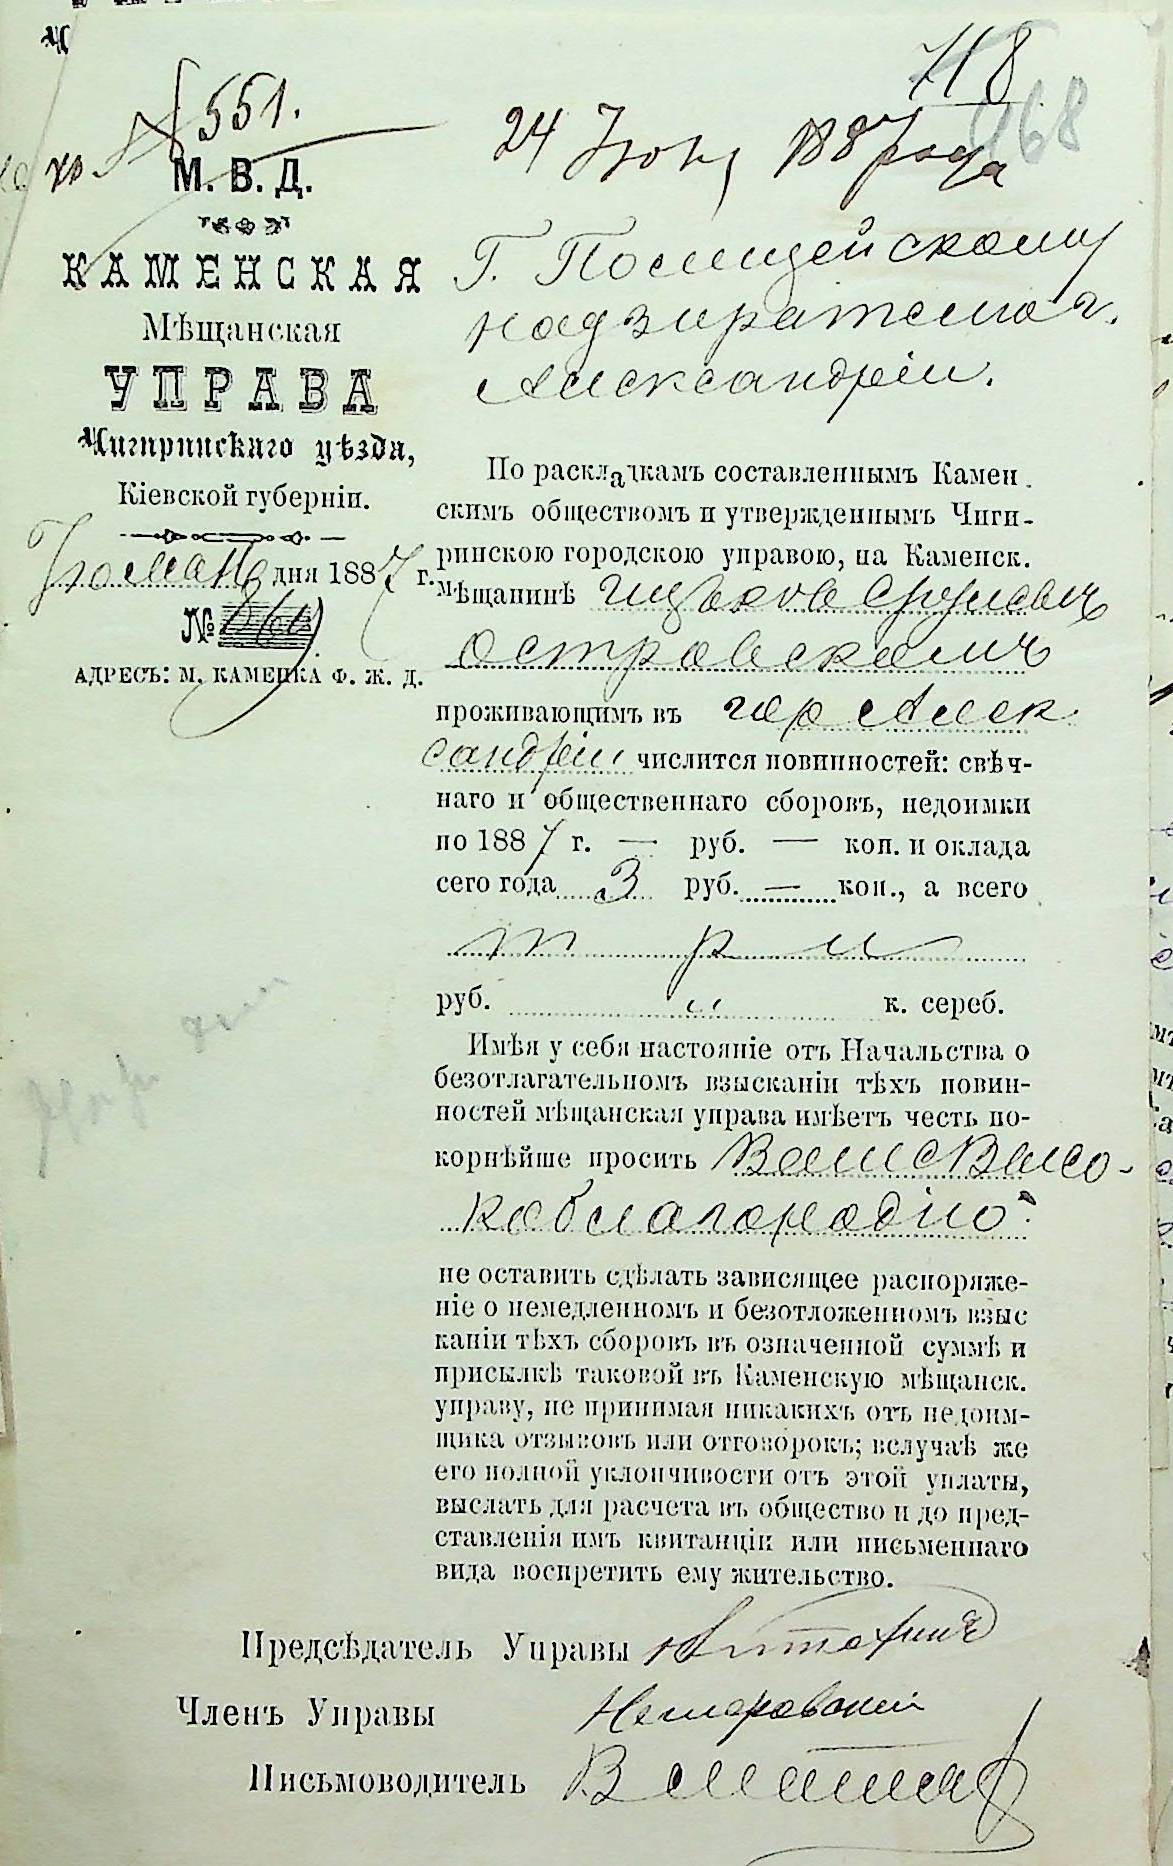 718
168
№ 551.
24 Іюня 1887 года
М. В. Д.
КАМЕНСКАЯ
Мѣщанская
УПРАВА
Чигиринскаго уѣзда,
Кіевской губерніи.
дня 1887 г.
№
АДРЕСЪ: М. КАМЕНКА Ф. Ж. Д.
Г. Полицейскому
надзирателю г.
Александріи.
По раскладкамъ составленнымъ Камен
скимъ обществомъ и утвержденнымъ Чиги-
ринскою городскою управою, на Каменск.
мѣщанинѣ
Островскомъ
проживающимъ въ гор Алек
сандріи числится повинностей: свѣч-
наго и общественнаго сборовъ, недоимки
по 1887 г. — руб. — коп. и оклада
сего года 3 руб. — коп., а всего
три
руб. „ к. сереб.
Имѣя у себя настояніе отъ Начальства о
безотлагательномъ взысканіи тѣхъ повин-
ностей мѣщанская управа имѣетъ честь по-
корнѣйше просить Ваше Высо-
коблагородіе
не оставить сдѣлать зависящее распоряже-
ніе о немедленномъ и безотложенномъ взыс
каніи тѣхъ сборовъ въ означенной суммѣ и
присылкѣ таковой въ Каменскую мѣщанск.
управу, не принимая никакихъ отъ недоим-
щика отзывовъ или отговорокъ; вслучаѣ же
его полной уклончивости отъ этой уплаты,
выслать для расчета въ общество и до пред-
ставленія имъ квитанціи или письменнаго
вида воспретить ему жительство.
Предсѣдатель Управы
Членъ Управы
Письмоводитель